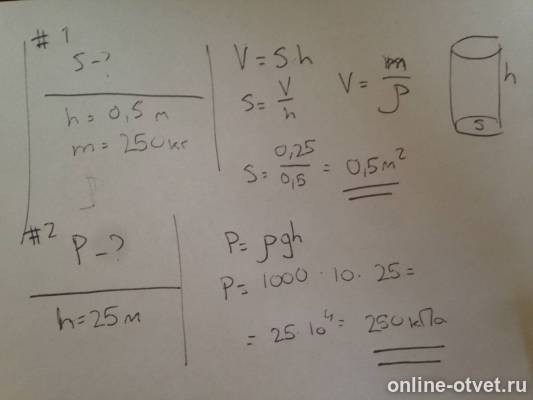 #1
S - ?
h = 0,5 м
m = 250 кг
V = S h
S = V/h
V = m/ρ
S = 0,25/0,5 = 0,5 м²
h
S
#2
P - ?
h = 25 м
P = ρgh
P = 1000 · 10 · 25 =
= 25 · 10⁴ = 250 кПа
online-otvet.ru